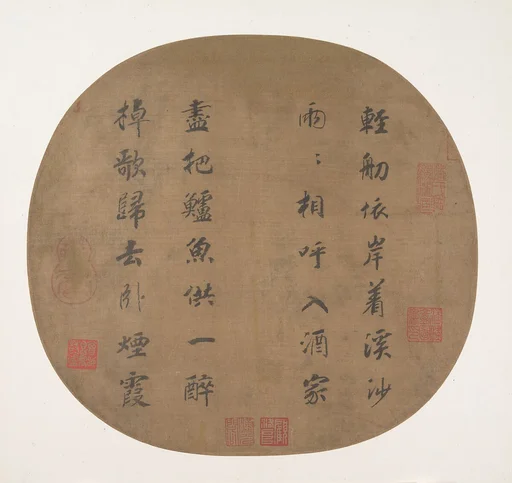 輕舠依岸着溪沙
兩〻相呼入酒家
盡把鱸魚供一醉
棹歌歸去臥煙霞